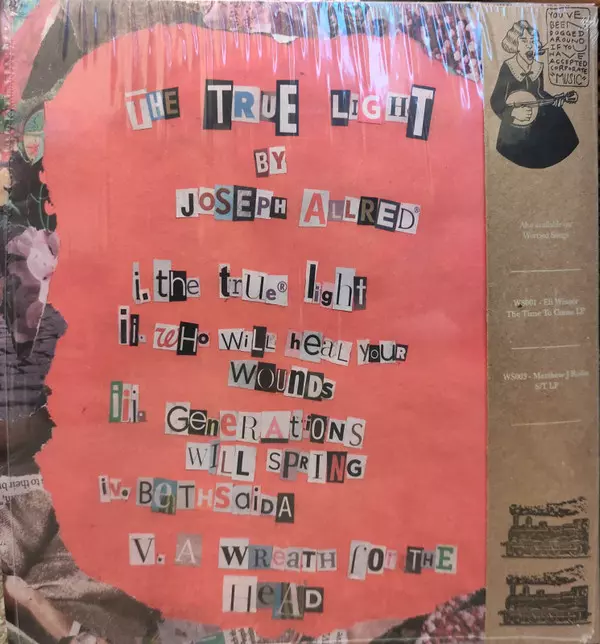 THE TRUE LIGHT
BY
JOSEPH ALLRED®
i. the true® light
ii. WHO WiLL heal YOUR
WOUNDS
iii. GeneRAtiONS
WiLL SPRING
iv. BeTHSaiDA
V. A WReATH fOR THE
HeAD
YOU'VE
BEEN
DOGGED
AROUND
IF YOU
HAVE
ACCEPTED
CORPORATE
MUSIC
Also available on
Worried Songs
WS001 - Eli Winter
The Time To Come LP
WS002 - Matthew J Rolin
S/T LP
to their br